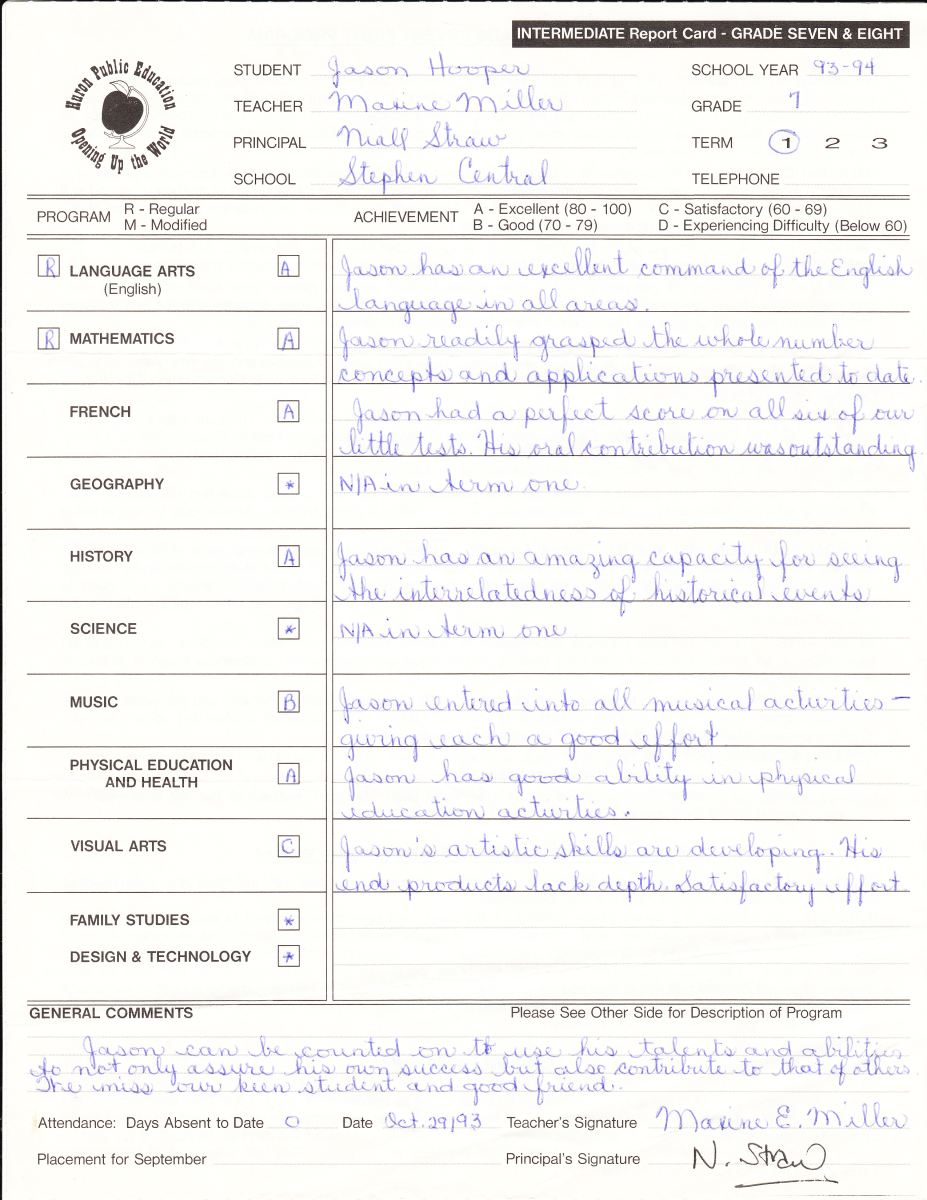 INTERMEDIATE Report Card - GRADE SEVEN & EIGHT
Huron Public Education
Opening Up the World
STUDENT Jason Hooper
SCHOOL YEAR 93-94
TEACHER Maxine Miller
GRADE 7
PRINCIPAL Niall Straw
TERM 1 2 3
SCHOOL Stephen Central
TELEPHONE
PROGRAM R - Regular
M - Modified
ACHIEVEMENT A - Excellent (80 - 100) C - Satisfactory (60 - 69)
B - Good (70 - 79) D - Experiencing Difficulty (Below 60)
R LANGUAGE ARTS A
(English)
Jason has an excellent command of the English
language in all areas.
R MATHEMATICS A
Jason readily grasped the whole number
concepts and applications presented to date.
FRENCH A
Jason had a perfect score on all six of our
little tests. His oral contribution was outstanding.
GEOGRAPHY *
N/A in term one.
HISTORY A
Jason has an amazing capacity for seeing
the interrelatedness of historical events
SCIENCE *
N/A in term one
MUSIC B
Jason entered into all musical activities -
giving each a good effort
PHYSICAL EDUCATION
AND HEALTH A
Jason has good ability in physical
education activities.
VISUAL ARTS C
Jason's artistic skills are developing. His
end products lack depth. Satisfactory effort.
FAMILY STUDIES *
DESIGN & TECHNOLOGY *
GENERAL COMMENTS
Please See Other Side for Description of Program
Jason can be counted on to use his talents and abilities
to not only assure his own success but also contribute to that of others.
We miss our keen student and good friend.
Attendance: Days Absent to Date 0 Date Oct. 29/93 Teacher's Signature Maxine E. Miller
Placement for September
Principal's Signature N. Straw